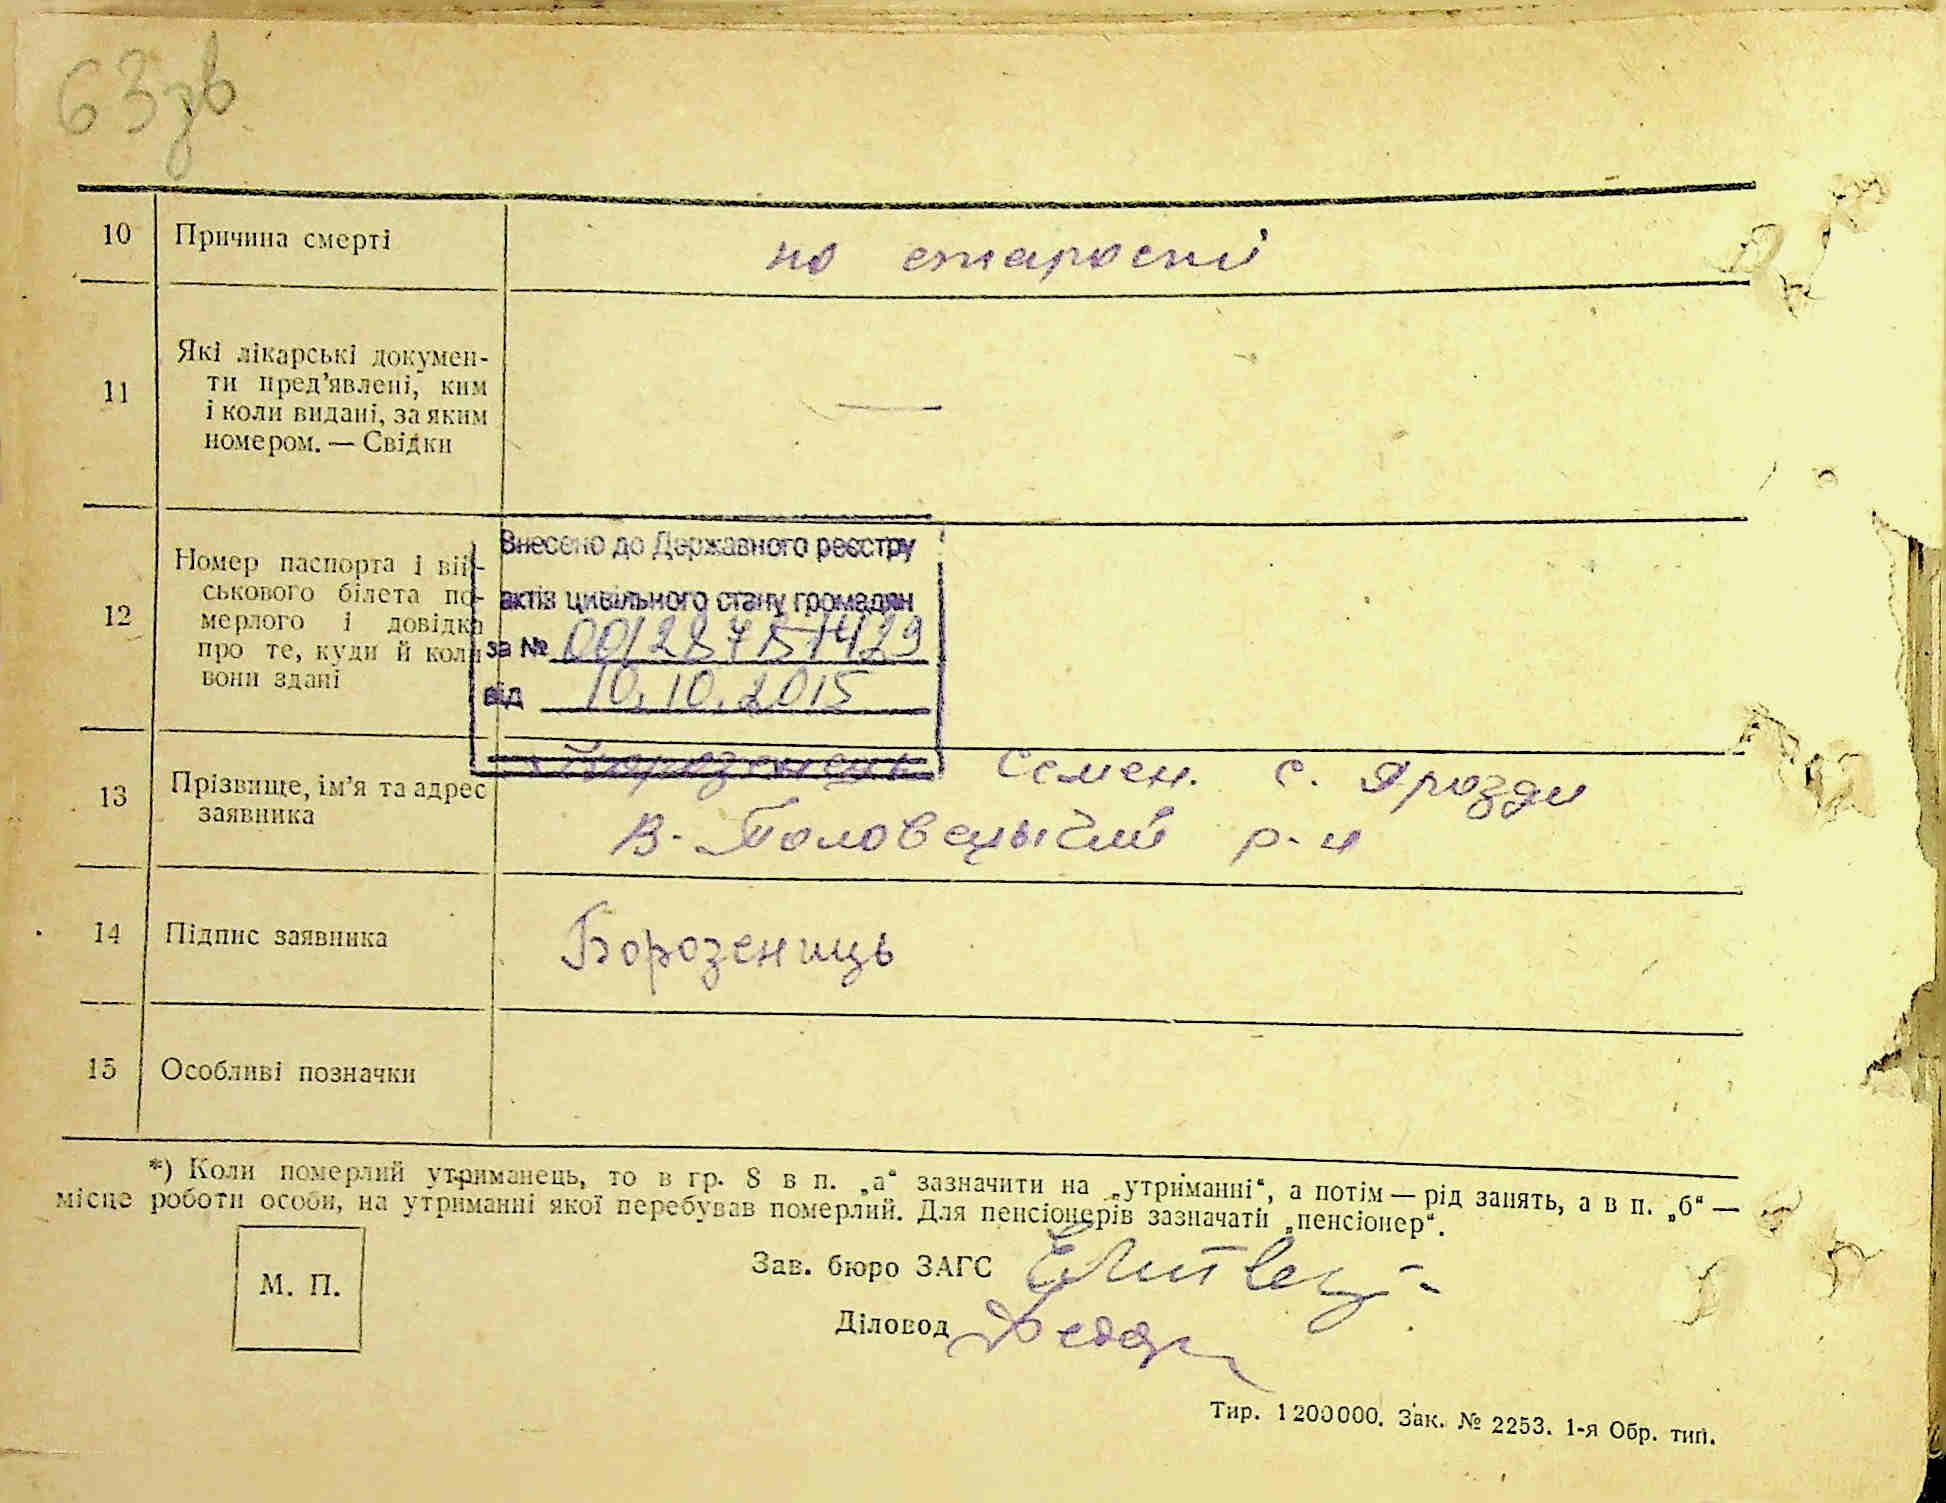 63зв
10 Причина смерті по старості
11 Які лікарські докумен-
ти пред’явлені, ким
і коли видані, за яким
номером. — Свідки —
12 Номер паспорта і вій-
ськового білета по-
мерлого і довідка
про те, куди й коли
вони здані
Внесено до Державного реєстру
актів цивільного стану громадян
за №
від 10.10.2015
13 Прізвище, ім’я та адрес
заявника
Семен. с. Дрозди
В-Половецький р-н
14 Підпис заявника Борозениць
15 Особливі позначки
*) Коли померлий утриманець, то в гр. 8 в п. „а“ зазначити на „утриманні“, а потім — рід занять, а в п. „б“ —
місце роботи особи, на утриманні якої перебував померлий. Для пенсіонерів зазначати „пенсіонер“.
М. П.
Зав. бюро ЗАГС
Діловод
Тир. 1200000. Зак. № 2253. 1-я Обр. тип.